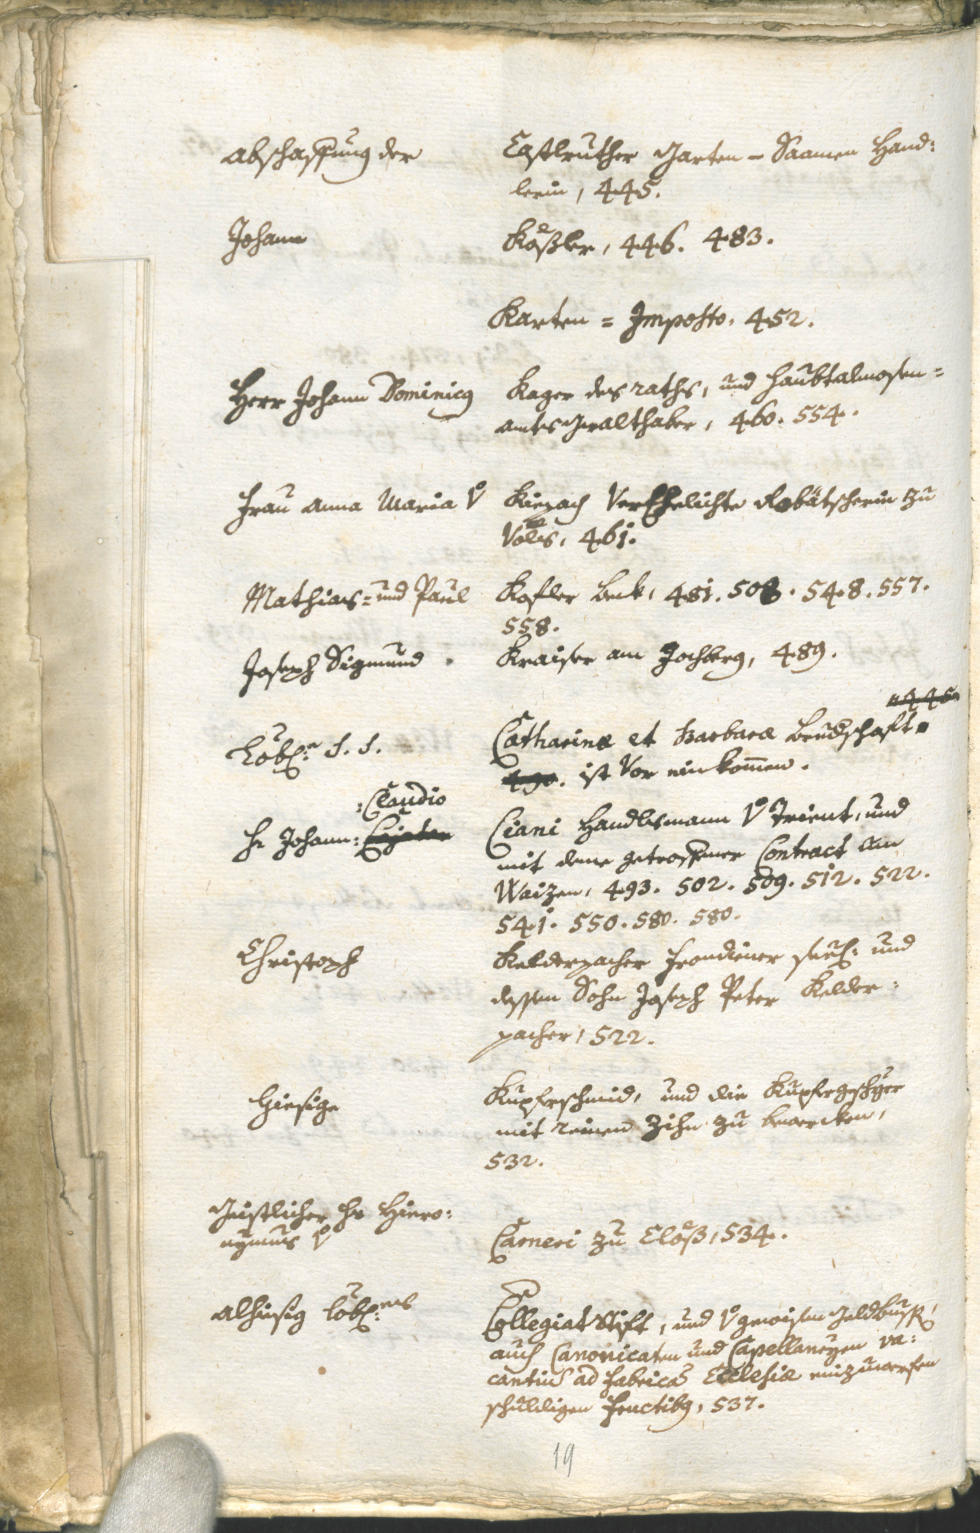 Abschaffung der Castlruther Garten-Saamen Hand:
lerin, 445.
Johann Koßler, 446. 483.
Karten = Imposto, 452.
Herr Johann Dominicq Kager des raths, und haubtalmosen=
amts Gwalthaber, 460. 554.
Frau Anna Maria v Kiepach Verehelichte Robatscherin zu
Vols, 461.
Mathias= und Paul Kofler Beck, 481. 508. 548. 557.
558.
Joseph Sigmund Kraiser am Jochberg, 489.
445
Löbl: S. S. Catharinæ et Barbaræ Brudschaft
490. ist vor einkomen.
:Claudio
Hr Johann: Ciani Handlsmann v Trient, und
mit deme getroffener Contract um
Waizen, 493. 502. 509. 512. 522.
541. 550. 580. 580.
Christoph Kelderpacher Frondiener und
dessen Sohn Joseph Peter Kelder:
pacher, 522.
Hiesige Kupferschmid, und die Kupfergschyr
mit reinem Zihn zu
532.
Geistlicher Hr Hiero:
nymus v Carneri zu Eloß, 534.
Alhiesig löbl: Collegiat Stifft, und
auch Canonicaten und Capellaneyen va:
cantiu ad fabrica Ecclesiæ einzuwerfen
schuldigen fructibq, 537.
19